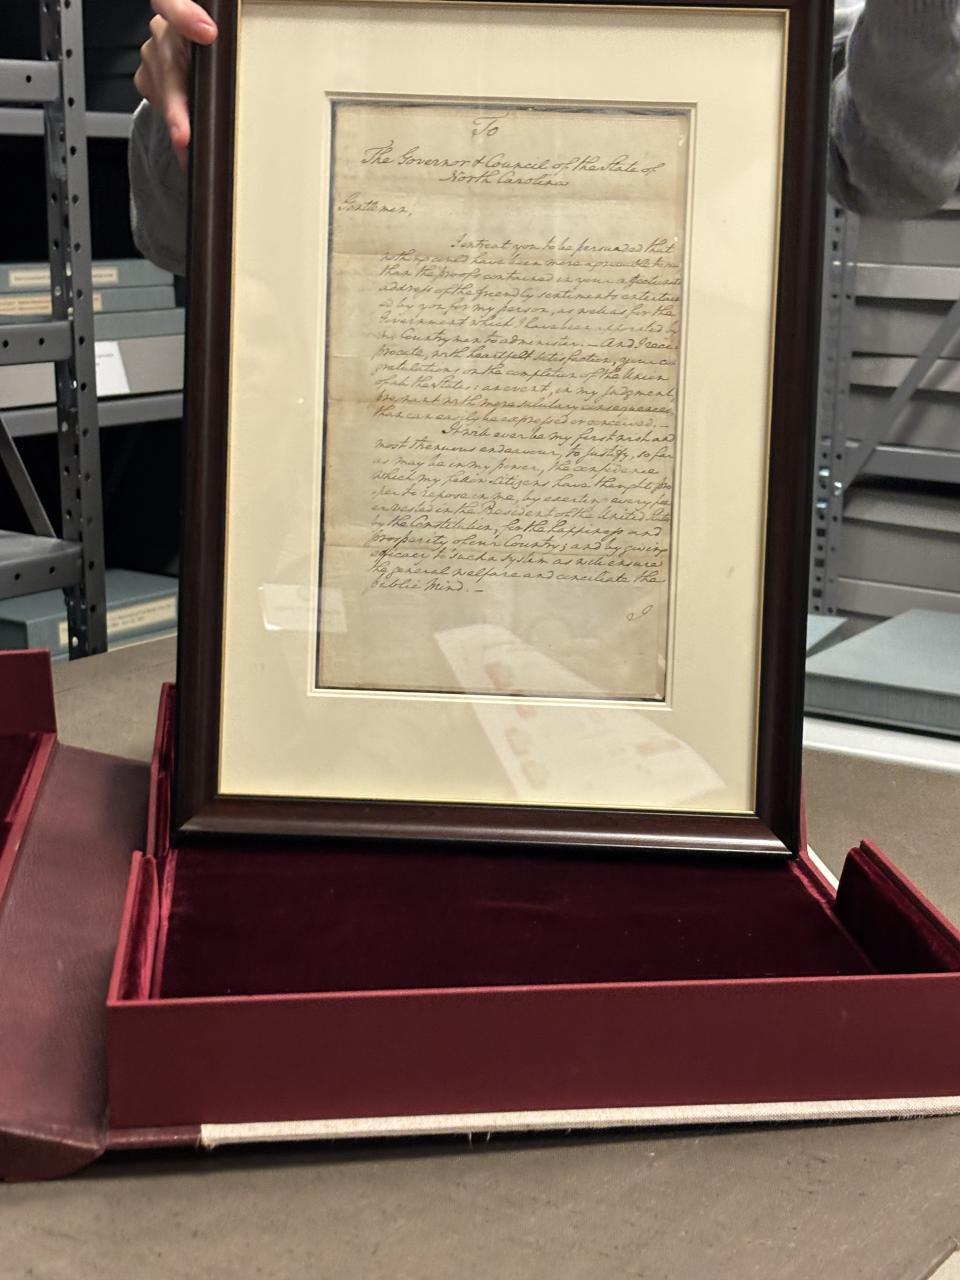 To
The Governor & Council of the State of
North Carolina
Gentlemen,
I entreat you to be persuaded that
nothing could have been more agreeable to me
than the proofs contained in your affectionate
address of the friendly sentiments entertain
ed by you for my person, as well as for the
Government which I have been appointed by
my Countrymen to administer. — And I reci
procate, with heartfelt satisfaction, your con
gratulations on the completion of the Union
of all the States: an event, in my judgment,
pregnant with more salutary consequences
than can easily be expressed or conceived. —
It will ever be my first wish and
most strenuous endeavour, to justify, so far
as may be in my power, the confidence
which my fellow-Citizens have thought pro
per to repose in me, by exerting every
vested in the President of the United States
by the Constitution, for the happiness and
prosperity of our Country; and by giving
efficacy to such a system as will ensure
the general welfare and conciliate the
public Mind. —
I